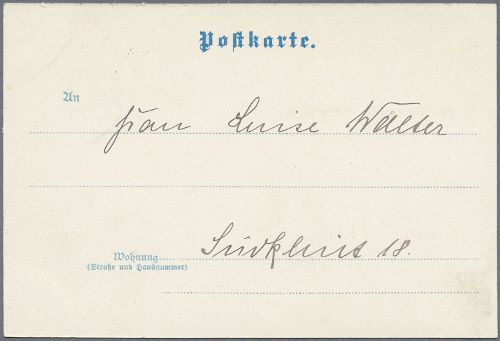 Postkarte.
An
Frau Luise Walter
Wohnung
Südklint 18.
(Straße und Hausnummer)